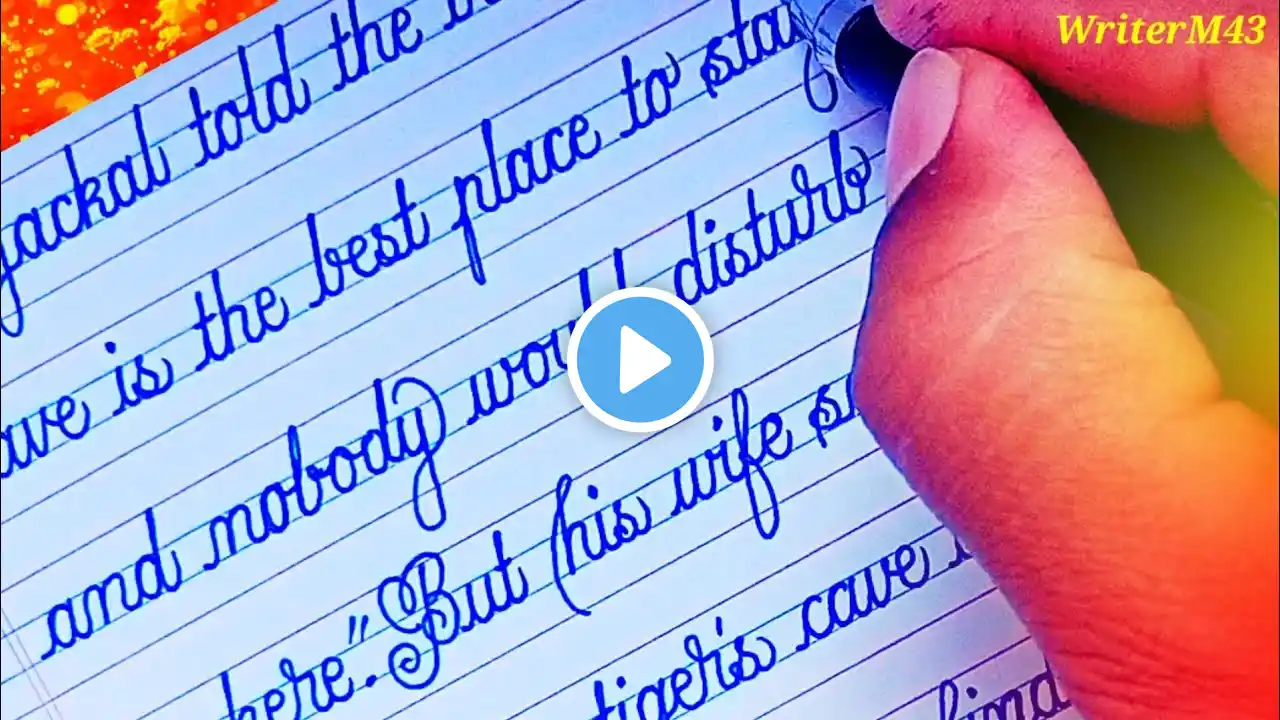 WriterM43
jackal told the
is the best place to stay
and nobody would disturb
here." But his wife
tiger's cave